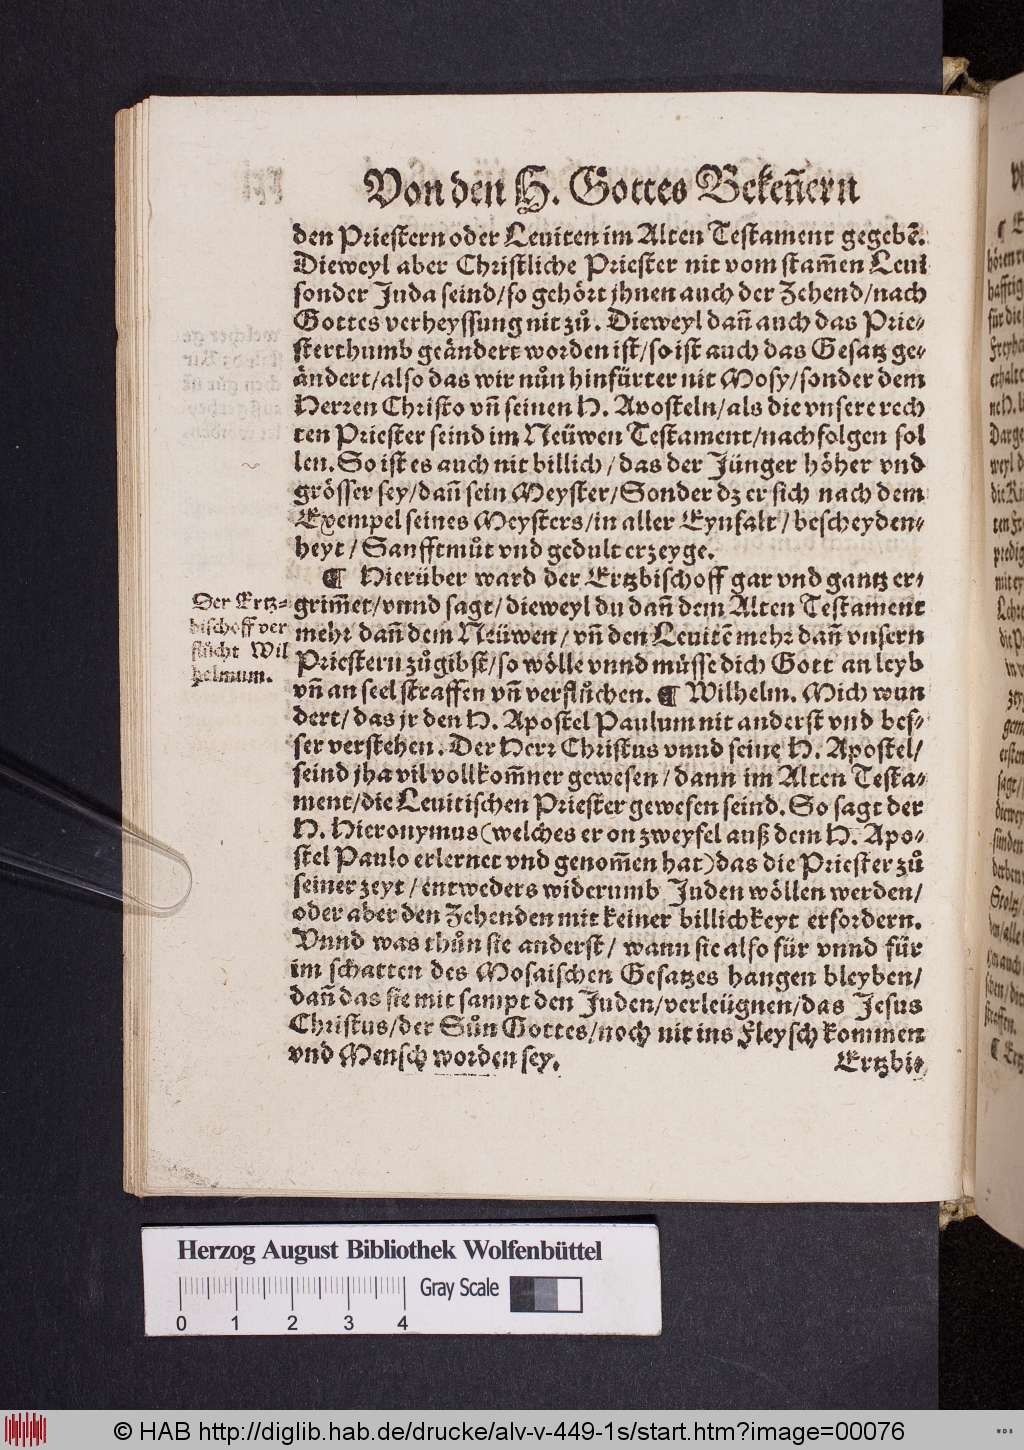 Von den H. Gottes Bekeñern
den Priestern oder Leuiten im Alten Testament gegebẽ.
Dieweyl aber Christliche Priester nit vom stam̃en Leui
sonder Juda seind/so gehört jhnen auch der Zehend/nach
Gottes verheyssung nit zů. Dieweyl dañ auch das Prie-
sterthumb geändert worden ist/so ist auch das Gesatz ge-
ändert/also das wir nůn hinfürter nit Mosy/sonder dem
Herren Christo vñ seinen H. Aposteln/als die vnsere rech
ten Priester seind im Neüwen Testament/nachfolgen sol
len. So ist es auch nit billich/das der Jünger höher vnd
grösser sey/dañ sein Meyster/Sonder dz er sich nach dem
Exempel seines Meysters/in aller Eynfalt/bescheyden-
heyt/Sanfftmůt vnd gedult erzeyge.
¶ Hierüber ward der Ertzbischoff gar vnd gantz er-
Der Ertz-
bischoff ver
flůcht Wil
helmum.
grim̃et/vnnd sagt/dieweyl du dañ dem Alten Testament
mehr dañ dem Neüwen/vñ den Leuitẽ mehr dañ vnsern
Priestern zůgibst/so wölle vnnd müsse dich Gott an leyb
vñ an seel straffen vñ verflůchen. ¶ Wilhelm. Mich wun
dert/das jr den H. Apostel Paulum nit anderst vnd bes-
ser verstehen. Der Herr Christus vnnd seine H. Apostel/
seind jha vil vollkom̃ner gewesen/dann im Alten Testa-
ment/die Leuitischen Priester gewesen seind. So sagt der
H. Hieronymus(welches er on zweyfel auß dem H. Apo-
stel Paulo erlernet vnd genom̃en hat)das die Priester zů
seiner zeyt/entweders widerumb Juden wöllen werden/
oder aber den Zehenden mit keiner billichkeyt erfordern.
Vnnd was thůn sie anderst/wann sie also für vnnd für
im schatten des Mosaischen Gesatzes hangen bleyben/
dañ das sie mit sampt den Juden/verleügnen/das Jesus
Christus/der Sůn Gottes/noch nit ins Fleysch kommen
vnd Mensch worden sey.
Ertzbi-
Herzog August Bibliothek Wolfenbüttel
Gray Scale
0 1 2 3 4
© HAB http://diglib.hab.de/drucke/alv-v-449-1s/start.htm?image=00076